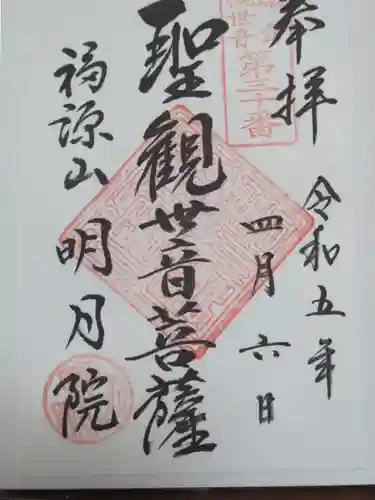 奉拝
令和五年
四月六日
観世音第三十番
聖觀世音菩薩
福源山
明月院